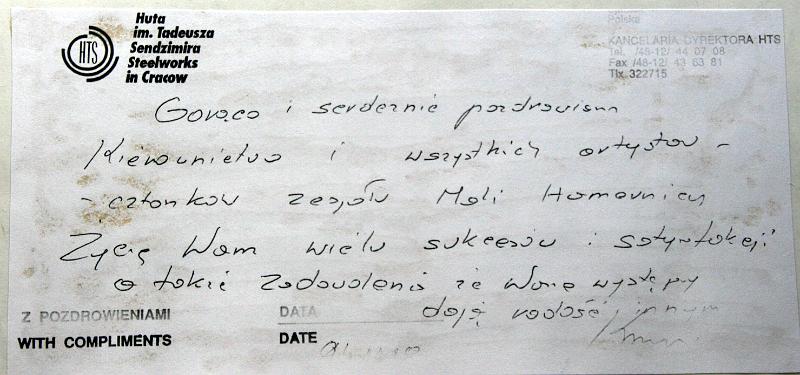 HTS
Huta
im. Tadeusza
Sendzimira
Steelworks
in Cracow
Polska
KANCELARIA DYREKTORA HTS
Tel. /48-12/ 44 07 08
Fax /48-12/ 43 63 81
Tlx. 322715
Gorąco i serdecznie pozdrawiam
Kierownictwo i wszystkich artystów -
- członków zespołu Mali Hamernicy
Życzę Wam wielu sukcesów i satysfakcji
a także zadowolenia że Wasze występy
dają radość innym
Z POZDROWIENIAMI
WITH COMPLIMENTS
DATA
DATE